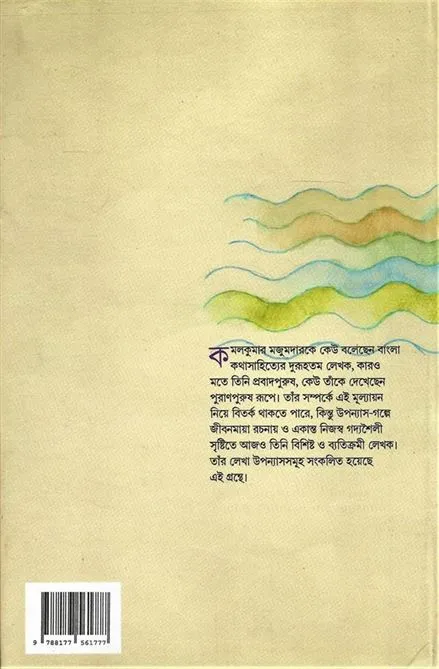 কমলকুমার মজুমদারকে কেউ বলেছেন বাংলা
কথাসাহিত্যের দুরূহতম লেখক, কারও
মতে তিনি প্রবাদপুরুষ, কেউ তাঁকে দেখেছেন
পুরাণপুরুষ রূপে। তাঁর সম্পর্কে এই মূল্যায়ন
নিয়ে বিতর্ক থাকতে পারে, কিন্তু উপন্যাস-গল্পে
জীবনমায়া রচনায় ও একান্ত নিজস্ব গদ্যশৈলী
সৃষ্টিতে আজও তিনি বিশিষ্ট ও ব্যতিক্রমী লেখক।
তাঁর লেখা উপন্যাসসমূহ সংকলিত হয়েছে
এই গ্রন্থে।
9 788177 561777